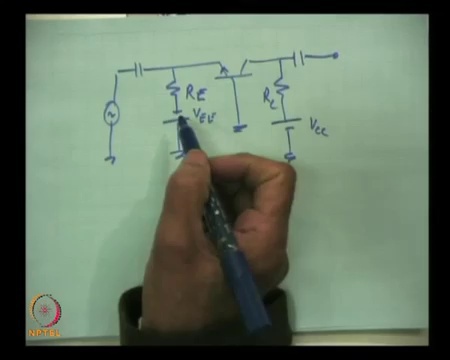 RE
VEE
RL
VCC
NPTEL